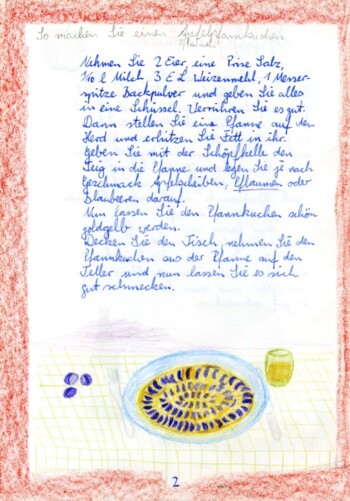 So machen Sie einen Apfelpfannkuchen
Nehmen Sie 2 Eier, eine Prise Salz,
1/8 l Milch, 3 EL Weizenmehl, 1 Messer-
spitze Backpulver und geben Sie alles
in eine Schüssel. Verrühren Sie es gut.
Dann stellen Sie eine Pfanne auf den
Herd und erhitzen Sie Fett in ihr.
Geben Sie mit der Schöpfkelle den
Teig in die Pfanne und legen Sie je nach
Geschmack Apfelscheiben, Pflaumen oder
Blaubeeren darauf.
Nun lassen Sie den Pfannkuchen schön
goldgelb werden.
Decken Sie den Tisch, nehmen Sie den
Pfannkuchen aus der Pfanne auf den
Teller und nun lassen Sie es sich
gut schmecken.
2